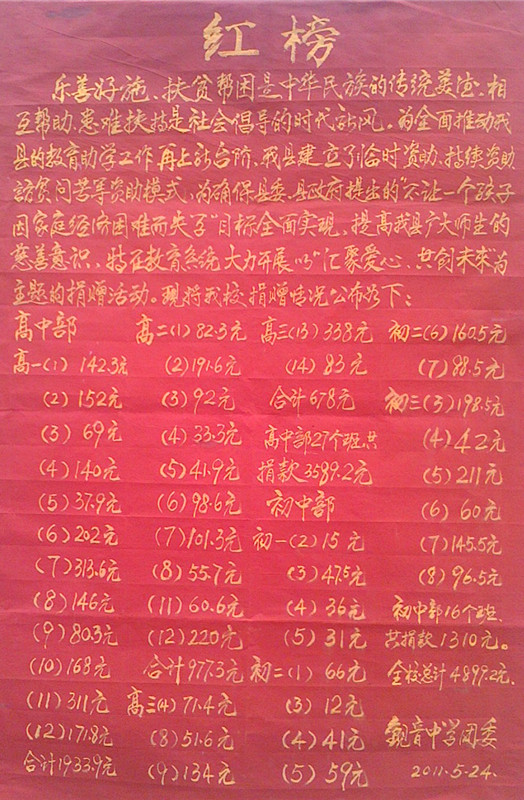 红榜
乐善好施、扶贫帮困是中华民族的传统美德.相
互帮助、患难扶持是社会倡导的时代新风。为全面推动我
县的教育助学工作再上新台阶、我县建立了临时资助、持续资助
访贫问苦等资助模式、为确保县委、县政府提出的“不让一个孩子
因家庭经济困难而失学”目标全面实现、提高我县广大师生的
慈善意识、特在教育系统大力开展以“汇聚爱心、共创未来”为
主题的捐赠活动。现将我校捐赠情况公布如下：
高中部
高一(1) 142.3元
(2) 152元
(3) 69元
(4) 140元
(5) 37.9元
(6) 202元
(7) 313.6元
(8) 146元
(9) 80.3元
(10) 168元
(11) 311元
(12) 171.8元
合计1933.9元
高二(1) 82.3元
(2) 191.6元
(3) 92元
(4) 33.3元
(5) 41.9元
(6) 98.6元
(7) 101.3元
(8) 55.7元
(11) 60.6元
(12) 220元
合计977.3元
高三(4) 71.4元
(8) 51.6元
(9) 134元
高三(13) 338元
(14) 83元
合计678元
高中部27个班共
捐款3589.2元
初中部
初一(2) 15元
(3) 47.5元
(4) 36元
(5) 31元
初二(1) 66元
(3) 12元
(4) 41元
(5) 59元
初二(6) 160.5元
(7) 88.5元
初三(3) 198.5元
(4) 42元
(5) 211元
(6) 60元
(7) 145.5元
(8) 96.5元
初中部16个班.
共捐款1310元。
全校总计4899.2元.
观音中学团委
2011.5.24.